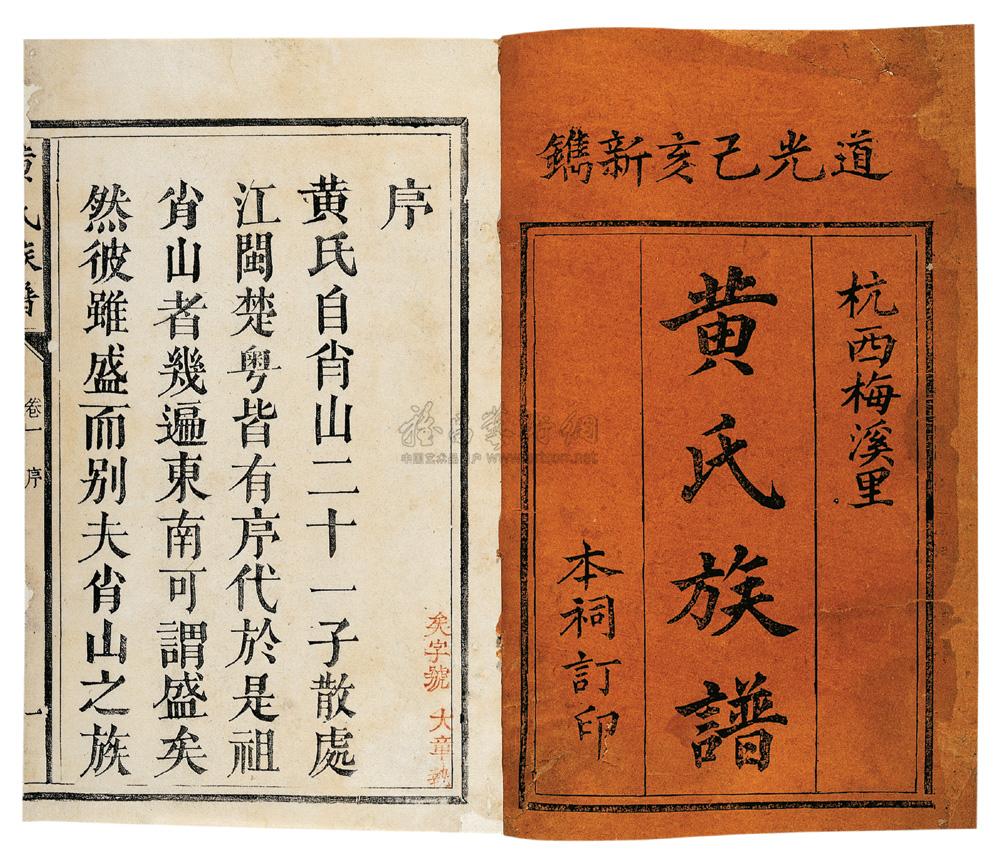 道光己亥新鐫
杭西梅溪里
黄氏族譜
本祠訂印
序
黄氏自峭山二十一子散處
江閩楚粤皆有序代於是祖
峭山者幾遍東南可謂盛矣
然彼雖盛而别夫峭山之族
矣字號 大章執
黄氏族譜
卷一 序
一
www.artxun.net